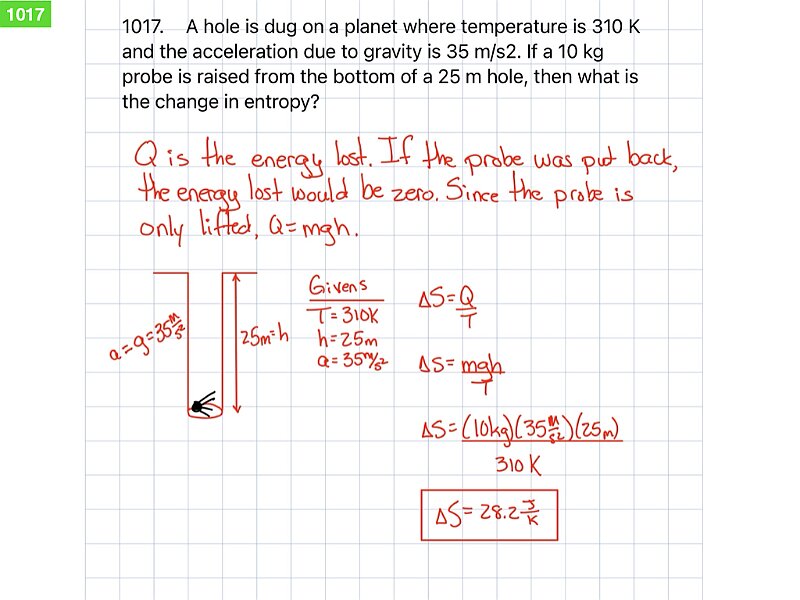 1017
1017. A hole is dug on a planet where temperature is 310 K
and the acceleration due to gravity is 35 m/s2. If a 10 kg
probe is raised from the bottom of a 25 m hole, then what is
the change in entropy?
Q is the energy lost. If the probe was put back,
the energy lost would be zero. Since the probe is
only lifted, Q=mgh.
a=g=35 m/s²
25m=h
Givens
T=310K
h=25m
a=35m/s²
ΔS=Q/T
ΔS=mgh/T
ΔS=(10kg)(35 m/s²)(25m)
310 K
ΔS=28.2 J/K